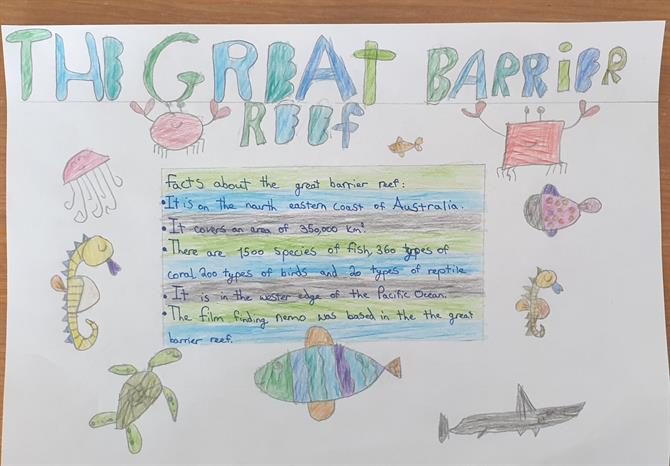 THE GREAT BARRIER
REEF
Facts about the great barrier reef:
• It is on the nourth eastern coast of Australia.
• It covers an area of 350,000 km²
• There are 1500 species of fish, 360 types of
coral, 200 types of birds and 20 types of reptile
• It is in the wester edge of the Pacific Ocean.
• The film finding nemo was based in the the great
barrier reef.